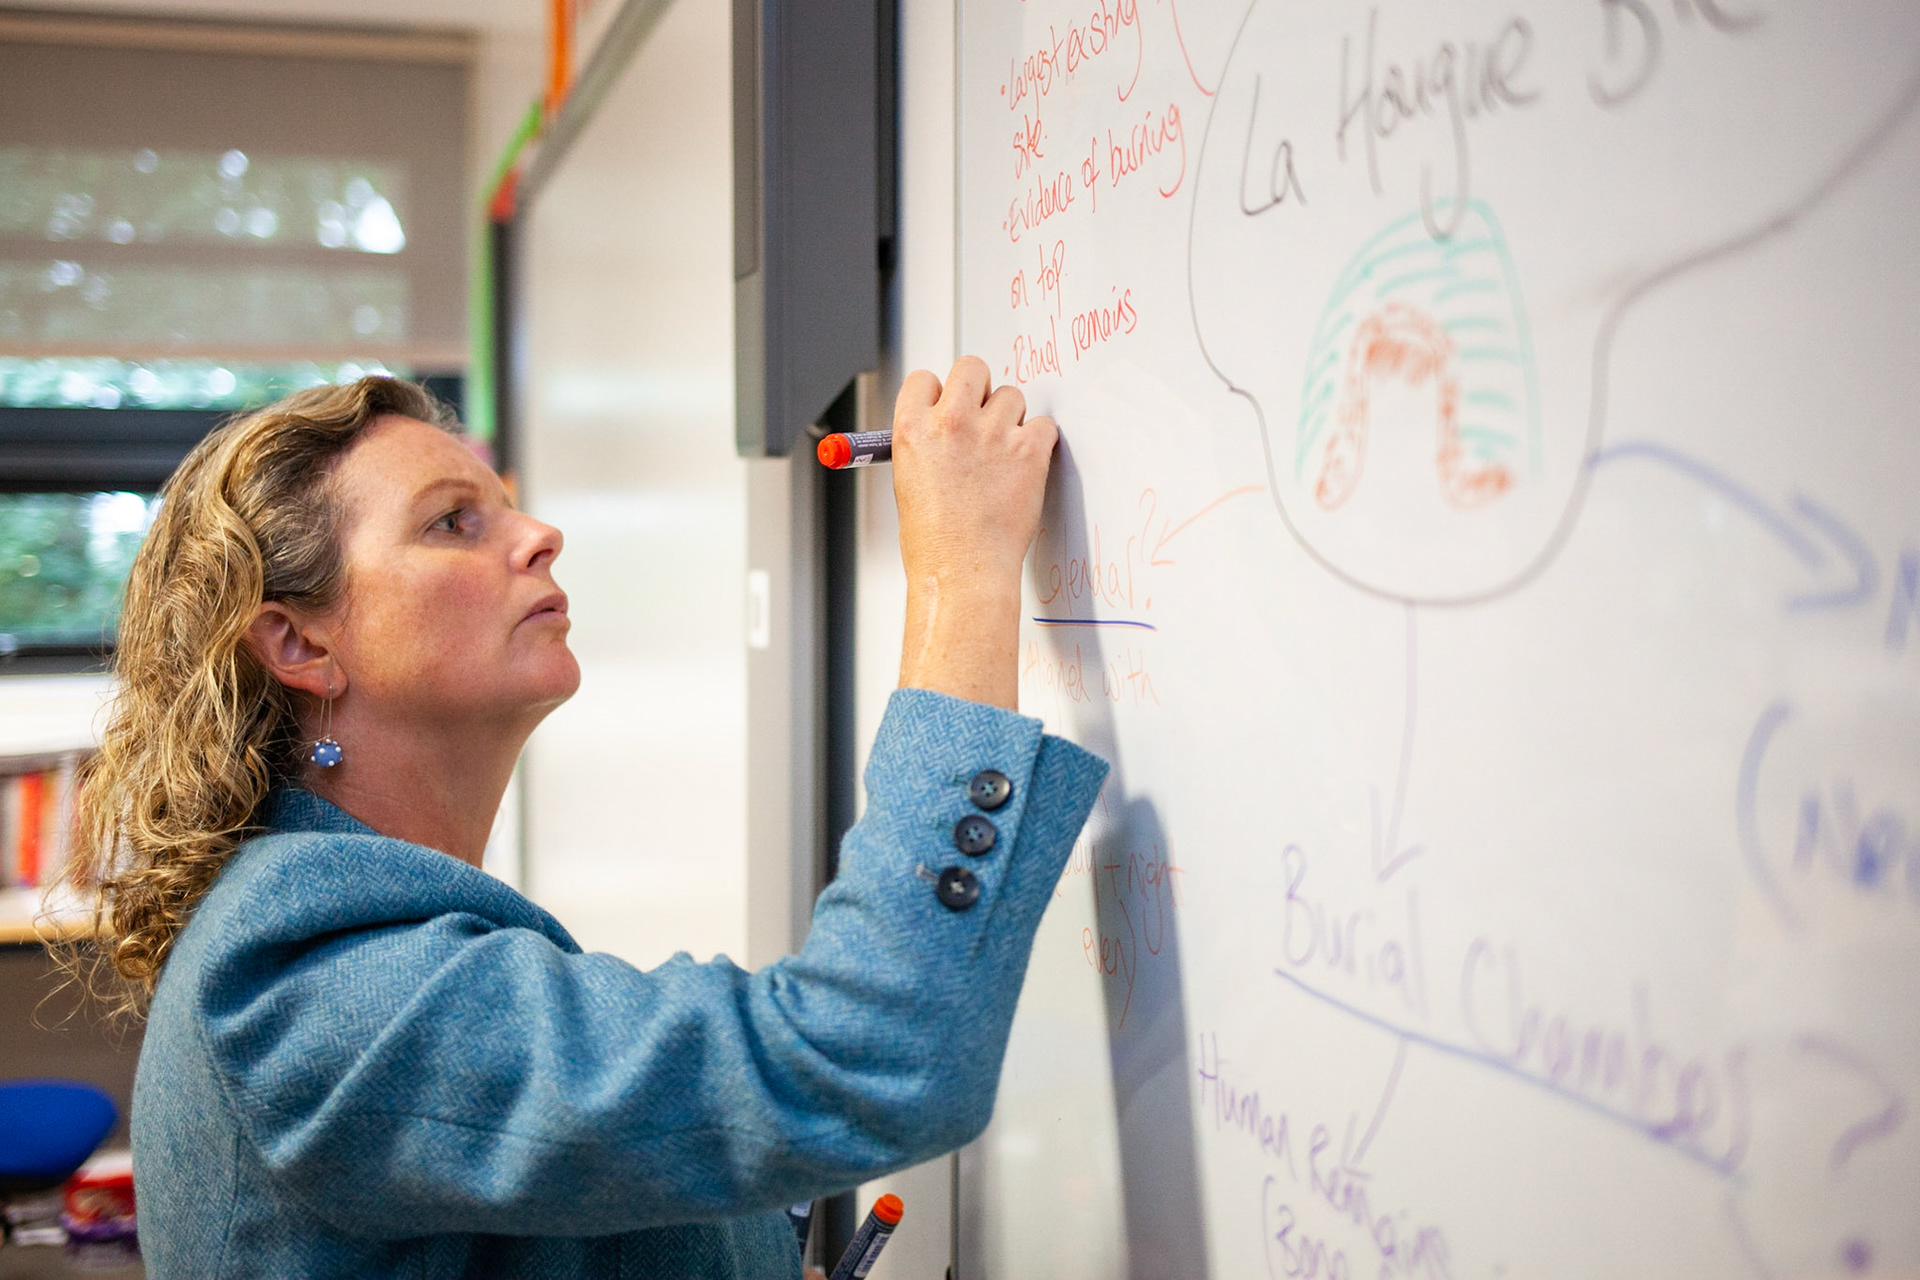 • Largest existing
site.
• Evidence of burning
on top.
• Ritual remains
La Hougue
Calendar?
Aligned with
night
even)
Burial Chamber
?
Human Remains
(Bone